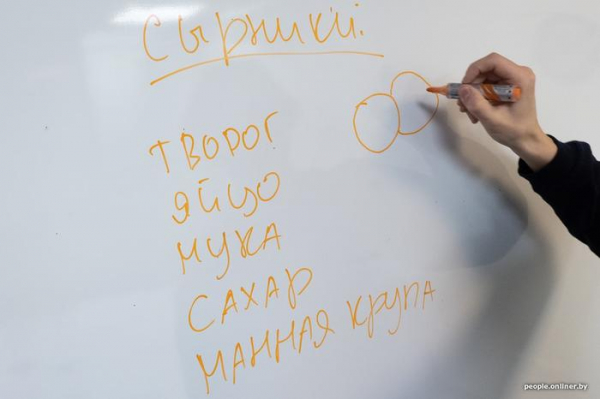 Сырники:
ТВОРОГ
ЯЙЦО
МУКА
САХАР
МАННАЯ крупА
people.onliner.by